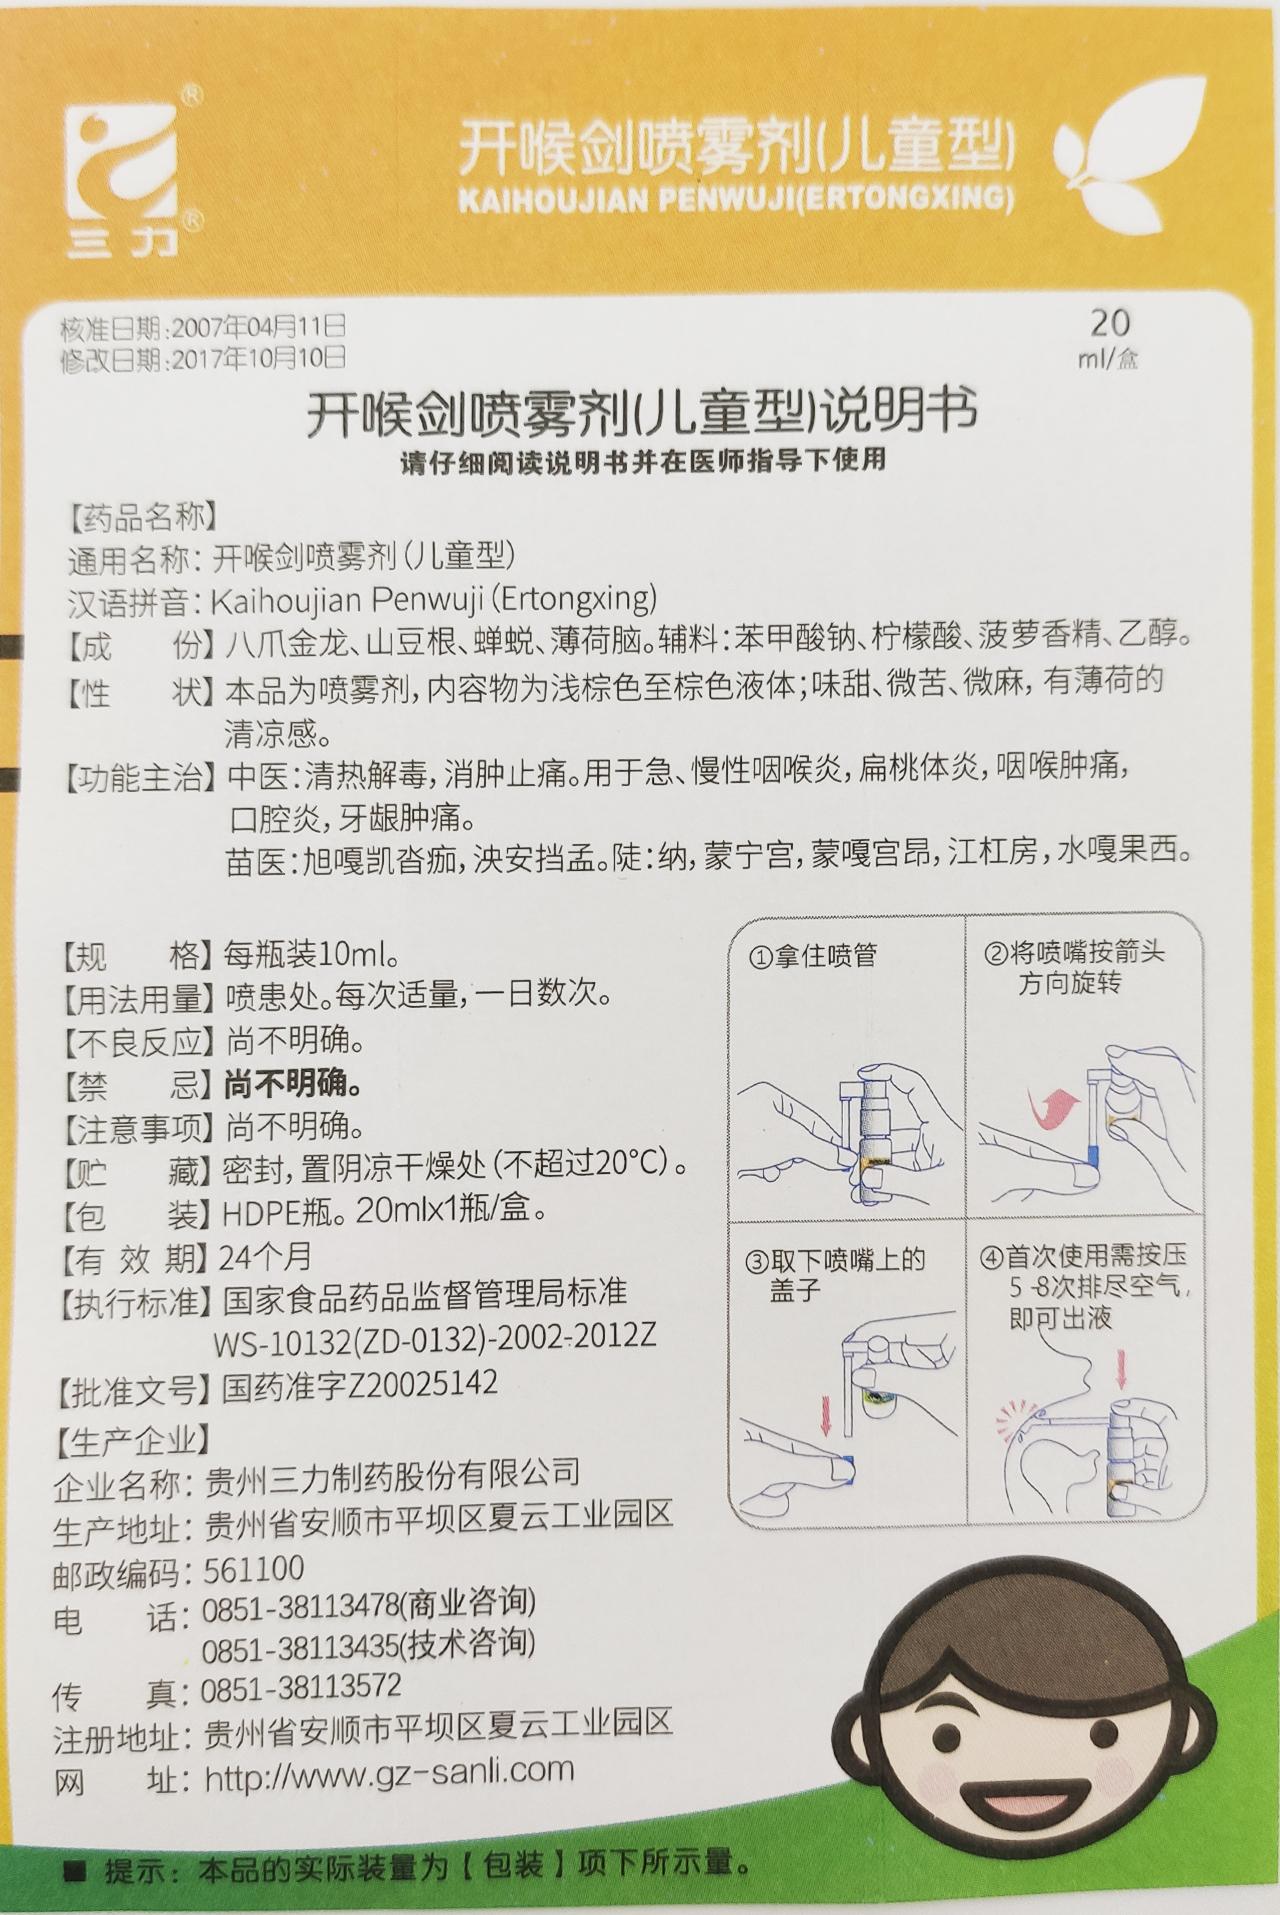 三力
®
®
开喉剑喷雾剂(儿童型)
KAIHOUJIAN PENWUJI(ERTONGXING)
核准日期:2007年04月11日
修改日期:2017年10月10日
20
ml/盒
开喉剑喷雾剂(儿童型)说明书
请仔细阅读说明书并在医师指导下使用
【药品名称】
通用名称：开喉剑喷雾剂(儿童型)
汉语拼音：Kaihoujian Penwuji(Ertongxing)
【成 份】八爪金龙、山豆根、蝉蜕、薄荷脑。辅料：苯甲酸钠、柠檬酸、菠萝香精、乙醇。
【性 状】本品为喷雾剂，内容物为浅棕色至棕色液体；味甜、微苦、微麻，有薄荷的
清凉感。
【功能主治】中医：清热解毒，消肿止痛。用于急、慢性咽喉炎，扁桃体炎，咽喉肿痛，
口腔炎，牙龈肿痛。
苗医：旭嘎凯沓痂，泱安挡孟。陡：纳，蒙宁宫，蒙嘎宫昂，江杠房，水嘎果西。
【规 格】每瓶装10ml。
【用法用量】喷患处。每次适量，一日数次。
【不良反应】尚不明确。
【禁 忌】尚不明确。
【注意事项】尚不明确。
【贮 藏】密封，置阴凉干燥处(不超过20°C)。
【包 装】HDPE瓶。20mlx1瓶/盒。
【有 效 期】24个月
【执行标准】国家食品药品监督管理局标准
WS-10132(ZD-0132)-2002-2012Z
【批准文号】国药准字Z20025142
【生产企业】
企业名称：贵州三力制药股份有限公司
生产地址：贵州省安顺市平坝区夏云工业园区
邮政编码：561100
电 话：0851-38113478(商业咨询)
0851-38113435(技术咨询)
传 真：0851-38113572
注册地址：贵州省安顺市平坝区夏云工业园区
网 址：http://www.gz-sanli.com
①拿住喷管
②将喷嘴按箭头
方向旋转
③取下喷嘴上的
盖子
④首次使用需按压
5-8次排尽空气，
即可出液
■ 提示：本品的实际装量为【包装】项下所示量。